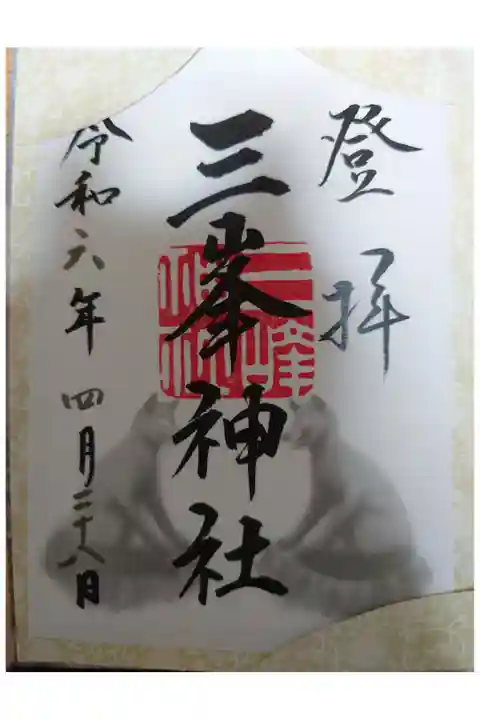 登拝
三峯神社
令和六年 四月二十八日